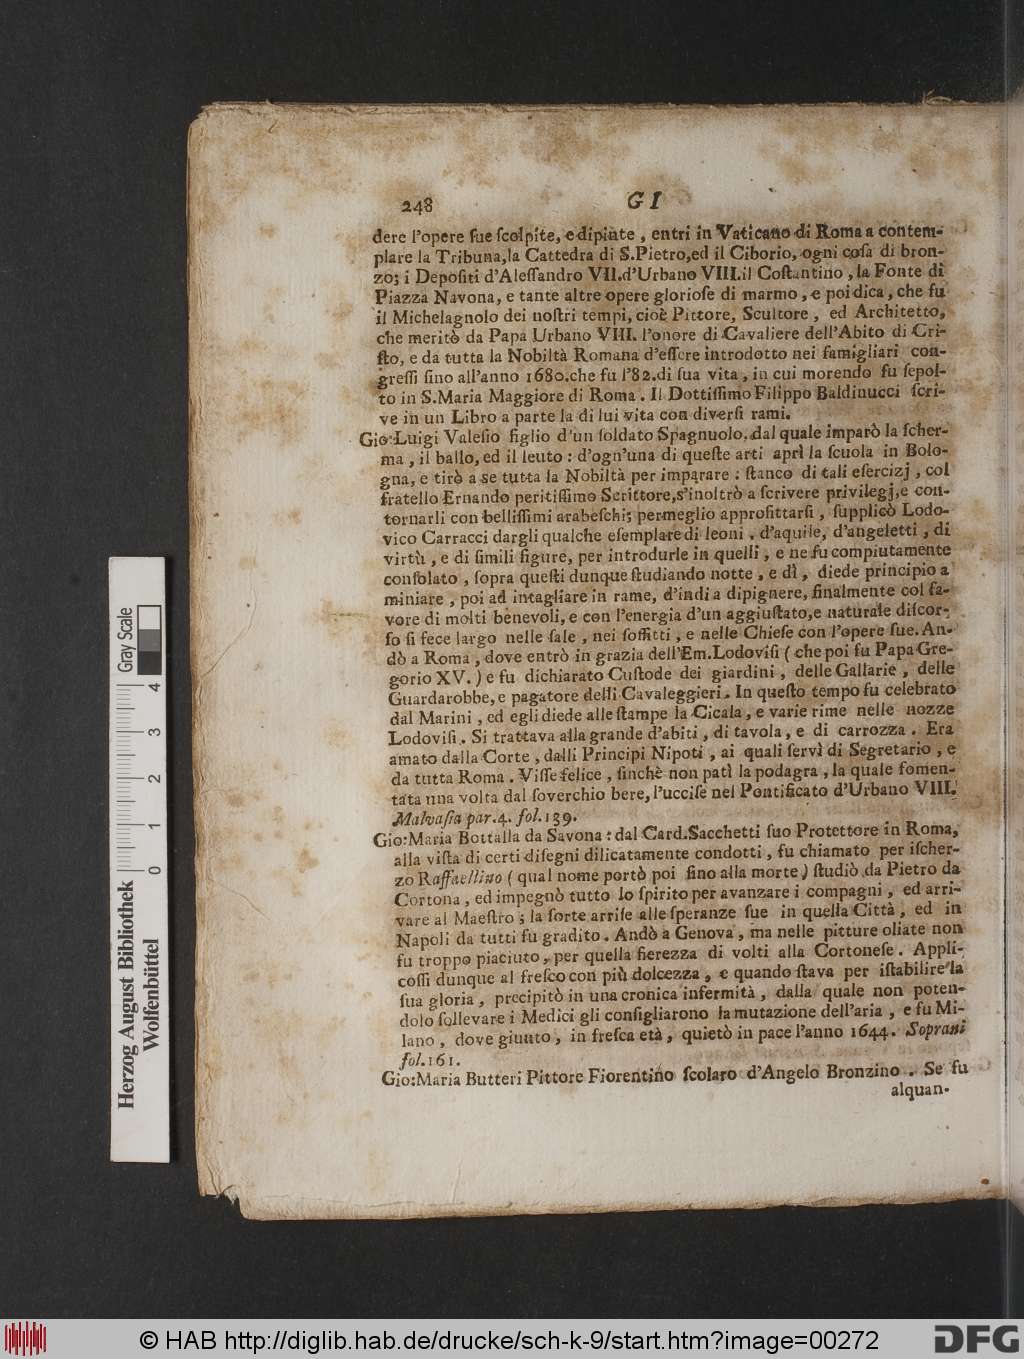 248 GI
dere l'opere sue ſcolpite, e dipinte, entri in Vaticano di Roma a contem-
plare la Tribuna, la Cattedra di S. Pietro, ed il Ciborio, ogni coſa di bron-
zo; i Depoſiti d'Aleſſandro VII. d'Urbano VIII. il Coſtantino, la Fonte di
Piazza Navona, e tante altre opere glorioſe di marmo, e poi dica, che fu
il Michelagnolo dei noſtri tempi, cioè Pittore, Scultore, ed Architetto,
che meritò da Papa Urbano VIII. l'onore di Cavaliere dell'Abito di Cri-
ſto, e da tutta la Nobiltà Romana d'eſſere introdotto nei famigliari con-
greſſi ſino all'anno 1680. che fu l'82. di ſua vita, in cui morendo fu ſepol-
to in S. Maria Maggiore di Roma. Il Dottiſſimo Filippo Baldinucci ſcri-
ve in un Libro a parte la di lui vita con diverſi rami.
Gio: Luigi Valeſio figlio d'un ſoldato Spagnuolo, dal quale imparò la ſcher-
ma, il ballo, ed il leuto: d'ogn'una di queſte arti aprì la ſcuola in Bolo-
gna, e tirò a se tutta la Nobiltà per imparare: ſtanco di tali eſercizj, col
fratello Ernando peritiſſimo Scrittore, s'inoltrò a ſcrivere privilegj, e con-
tornarli con belliſſimi arabeſchi; per meglio approfittarſi, ſupplicò Lodo-
vico Carracci dargli qualche eſemplare di leoni, d'aquile, d'angeletti, di
virtù, e di ſimili figure, per introdurle in quelli, e ne fu compiutamente
conſolato, ſopra queſti dunque ſtudiando notte, e dì, diede principio a
miniare, poi ad intagliare in rame, d'indi a dipignere, finalmente col fa-
vore di molti benevoli, e con l'energia d'un aggiuſtato, e naturale diſcor-
ſo ſi fece largo nelle ſale, nei ſoffitti, e nelle Chieſe con l'opere ſue. An-
dò a Roma, dove entrò in grazia dell'Em. Lodoviſi (che poi fu Papa Gre-
gorio XV.) e fu dichiarato Cuſtode dei giardini, delle Gallarie, delle
Guardarobbe, e pagatore delli Cavaleggieri. In queſto tempo fu celebrato
dal Marini, ed egli diede alle ſtampe la Cicala, e varie rime nelle nozze
Lodoviſi. Si trattava alla grande d'abiti, di tavola, e di carrozza. Era
amato dalla Corte, dalli Principi Nipoti, ai quali ſervì di Segretario, e
da tutta Roma. Viſſe felice, ſinchè non patì la podagra, la quale fomen-
tata una volta dal ſoverchio bere, l'ucciſe nel Pontificato d'Urbano VIII.
Malvaſia par. 4. fol. 139.
Gio: Maria Bottalla da Savona: dal Card. Sacchetti ſuo Protettore in Roma,
alla viſta di certi diſegni dilicatamente condotti, fu chiamato per iſcher-
zo Raffaellino (qual nome portò poi ſino alla morte) ſtudiò da Pietro da
Cortona, ed impegnò tutto lo ſpirito per avanzare i compagni, ed arri-
vare al Maeſtro; la ſorte arriſe alle ſperanze ſue in quella Città, ed in
Napoli da tutti fu gradito. Andò a Genova, ma nelle pitture oliate non
fu troppo piaciuto, per quella fierezza di volti alla Cortoneſe. Appli-
coſſi dunque al freſco con più dolcezza, e quando ſtava per iſtabilire la
ſua gloria, precipitò in una cronica infermità, dalla quale non poten-
dolo ſollevare i Medici gli conſigliarono la mutazione dell'aria, e fu Mi-
lano, dove giunto, in freſca età, quietò in pace l'anno 1644. Soprani
fol. 161.
Gio: Maria Butteri Pittore Fiorentino ſcolaro d'Angelo Bronzino. Se fu
alquan-
Herzog August Bibliothek
Wolfenbüttel
0 1 2 3 4
Gray Scale
© HAB http://diglib.hab.de/drucke/sch-k-9/start.htm?image=00272
DFG